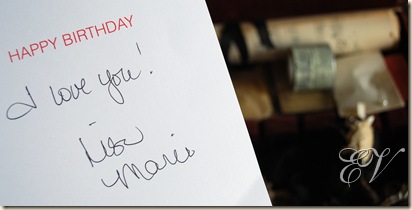 HAPPY BIRTHDAY
I love you!
Lisa
Marie
EV